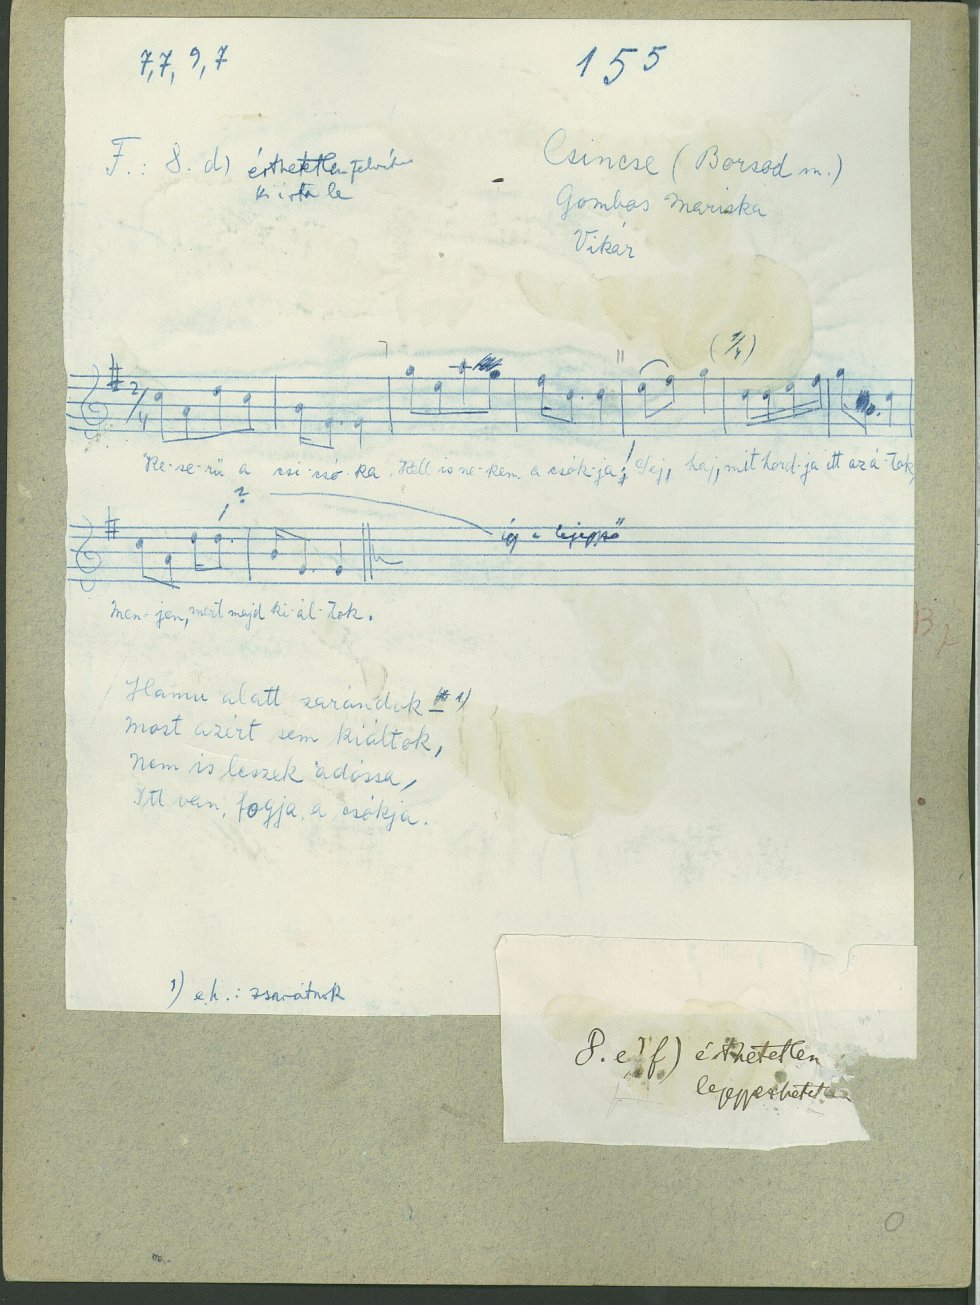 7, 7, 9, 7
155
F.: 8. d) érthetetlen
ki írta le
Csincse (Borsod m.)
Gombos Mariska
Vikár
2/4
Ke-se-rű a csi-csó-ka, Kell is ne-kem a csók-ja; Hej, haj, mit hord-ja itt az á-tok,
?
így a lejegyző
Men-jen, mert majd ki-ál-tok.
Hamu alatt zarándok 1)
Most azért sem kiáltok,
Nem is leszek adóssa,
Itt van, fogja, a csókja.
1) e.h.: zsarátnok
8. e) f) érthetetlen
0